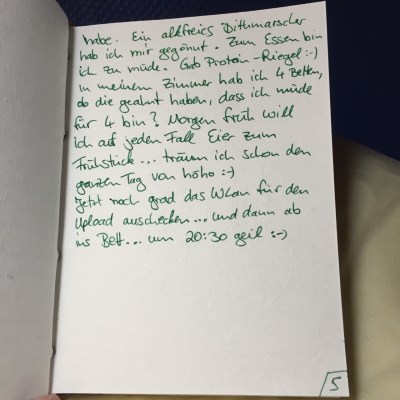 habe. Ein alkfreies Dithmarscher
hab ich mir gegönnt. Zum Essen bin
ich zu müde. Gab Protein-Riegel :-)
In meinem Zimmer hab ich 4 Betten,
ob die geahnt haben, dass ich müde
für 4 bin? Morgen früh will
ich auf jeden Fall Eier zum
Frühstück... träum ich schon den
ganzen Tag von höhö :-)
Jetzt noch grad das WLan für den
Upload auschecken... und dann ab
ins Bett... um 20:30 geil :-)
5